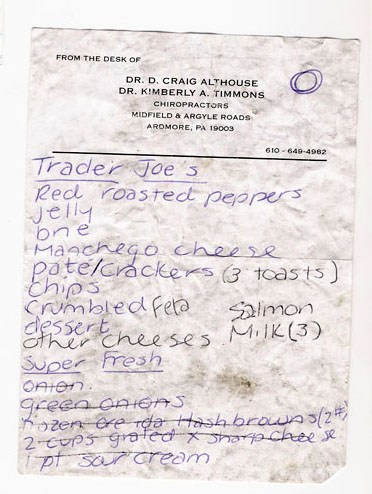 FROM THE DESK OF
DR. D. CRAIG ALTHOUSE
DR. KIMBERLY A. TIMMONS
CHIROPRACTORS
MIDFIELD & ARGYLE ROADS
ARDMORE, PA 19003
610 - 649-4962
Trader Joe's
Red roasted peppers
jelly
brie
Manchego cheese
pate/crackers (3 toasts)
chips
crumbled feta
salmon
dessert
Milk (3)
other cheeses
Super Fresh
onion.
green onions
frozen ore ida Hash browns (2#)
2 cups grated x sharp cheese
1 pt sour cream